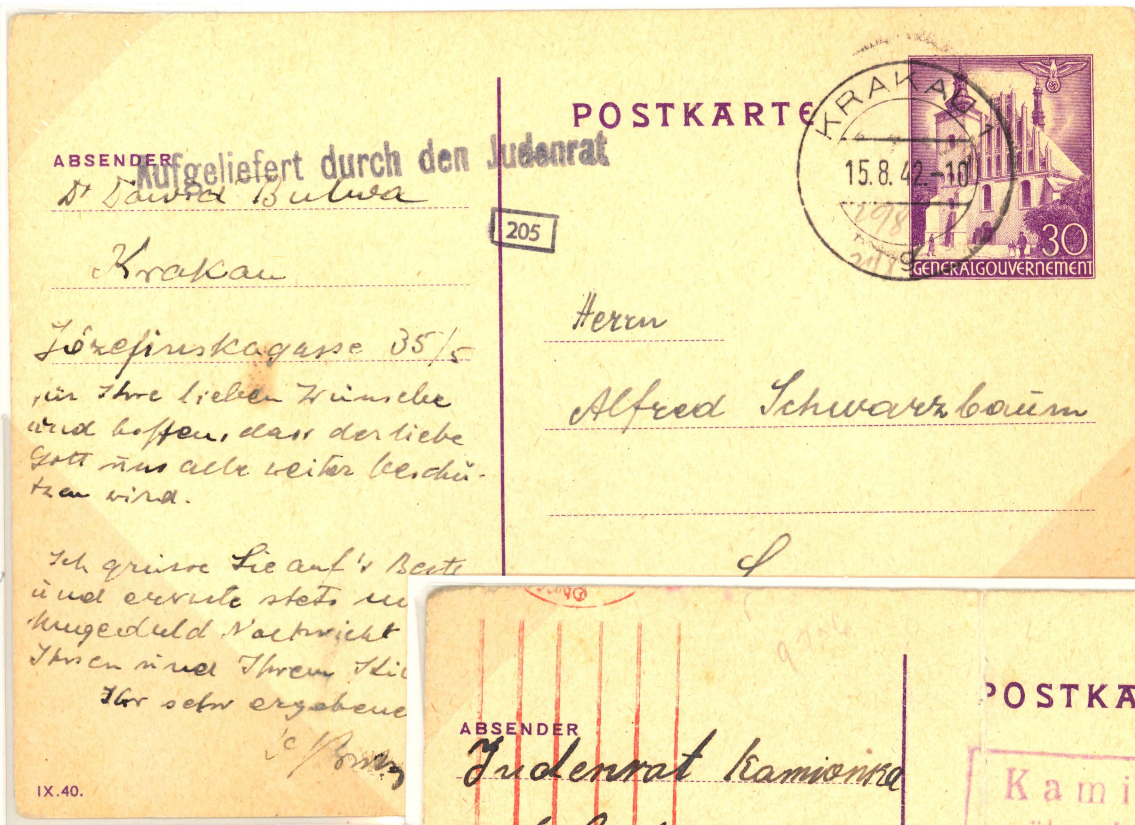 POSTKARTE
KRAKAU 1
15.8.42.-10
30
GENERALGOUVERNEMENT
ABSENDER
Aufgeliefert durch den Judenrat
Dr Dawid Bulwa
Krakau
Józefinskagasse 35/5
205
Herrn
Alfred Schwarzbaum
L
für Ihre lieben Wünsche
und hoffen, dass der liebe
Gott uns alle weiter beschü-
tzen wird.
Ich grüsse Sie auf's Beste
und erwarte stets
Ungeduld Nachricht
Ihnen und Ihrem
Ihr sehr ergebene
IX.40.
POSTKA
ABSENDER
Judenrat Kamionka
Kami